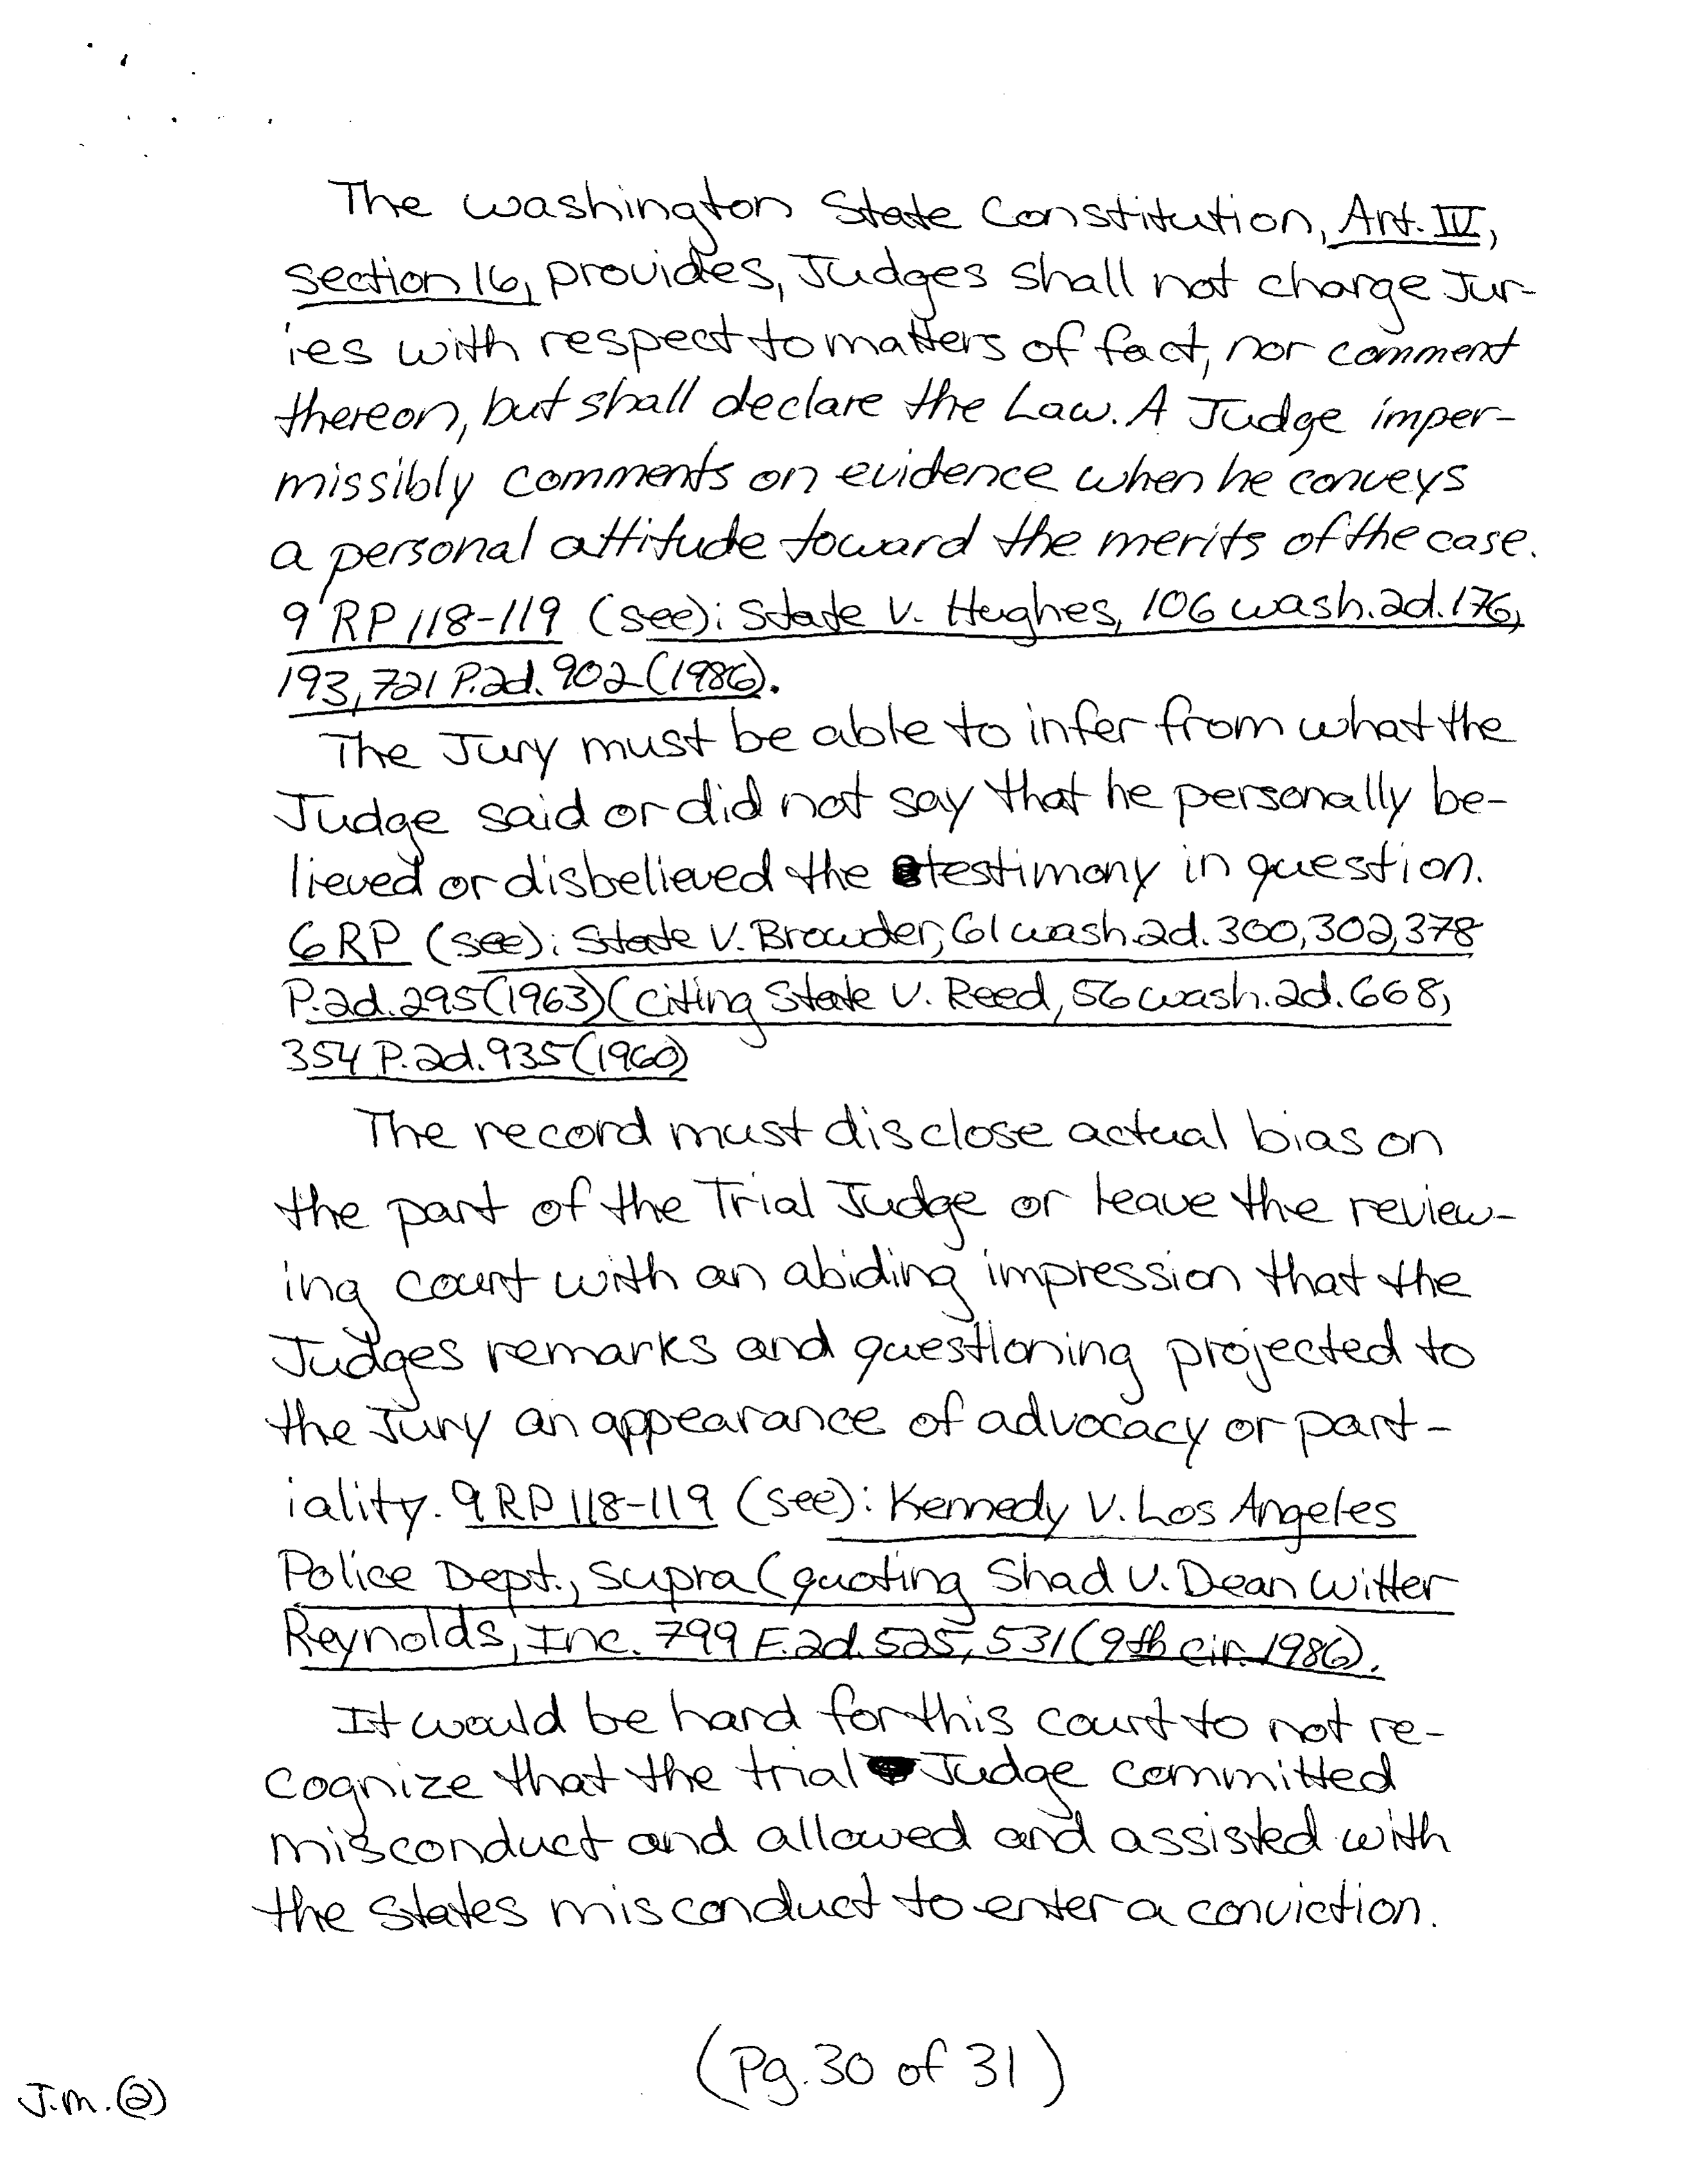 The Washington State Constitution, Art. IV,
section 16, provides, Judges shall not charge Jur-
ies with respect to matters of fact, nor comment
thereon, but shall declare the Law. A Judge imper-
missibly comments on evidence when he conveys
a personal attitude toward the merits of the case.
9 RP 118-119 (see): State v. Hughes, 106 wash.2d.176,
193,721 P.2d.902(1986).
The Jury must be able to infer from what the
Judge said or did not say that he personally be-
lieved or disbelieved the testimony in question.
6RP (see): State V. Browder, 61 wash.2d.300,302,378
P.2d.295(1963)(citing State V. Reed, 56 wash.2d.668,
354 P.2d.935(1960)
The record must disclose actual bias on
the part of the Trial Judge or leave the review-
ing court with an abiding impression that the
Judges remarks and questioning projected to
the Jury an appearance of advocacy or part-
iality. 9RP 118-119 (see): Kennedy V. Los Angeles
Police Dept., supra (quoting Shad V. Dean Witter
Reynolds, Inc. 799 F.2d.525, 531(9th cir. 1986).
It would be hard for this court to not re-
cognize that the trial Judge committed
misconduct and allowed and assisted with
the States misconduct to enter a conviction.
(Pg. 30 of 31)
J.M. (2)